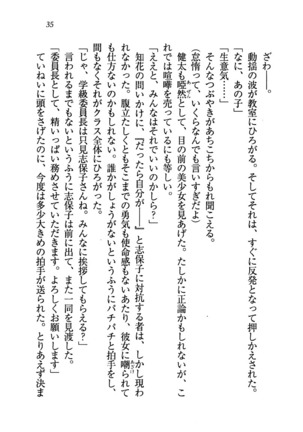 35
ざわ――。
動揺の波が教室にひろがる。そしてそれは、すぐに反発として押しかえされた。
「なに、あの子」
「生意気……」
そんなつぶやきがあちこちからも聞こえる。
（怠惰って、いくらなんでも言いすぎだよ）
健太も啞然として、目の前の美少女を見あげた。たしかに正論かもしれないが、これでは喧嘩を売っているにも等しい。
「ええと、みんなはそれでいいのかしら？」
知花の問いかけに、「だったら自分が――」と志保子に対抗する者は、しかし現われなかった。腹立たしくともそこまでの勇気も使命感もないあたり、彼女に嘲られても仕方ないのかもしれない。誰かがしょうがないというふうにパチパチと拍手をし、間もなくそれがクラス全体にひろがった。
「じゃ、学級委員長は只見志保子さんね。みんなに挨拶してもらえるかしら？」
言われるまでもないというふうに志保子は前に出て、また一同を見渡した。
「委員長として、精いっぱい務めさせていただきます。よろしくお願いします」
ていねいに頭をさげたのに、今度は多少大きめの拍手が送られた。とりあえず決ま